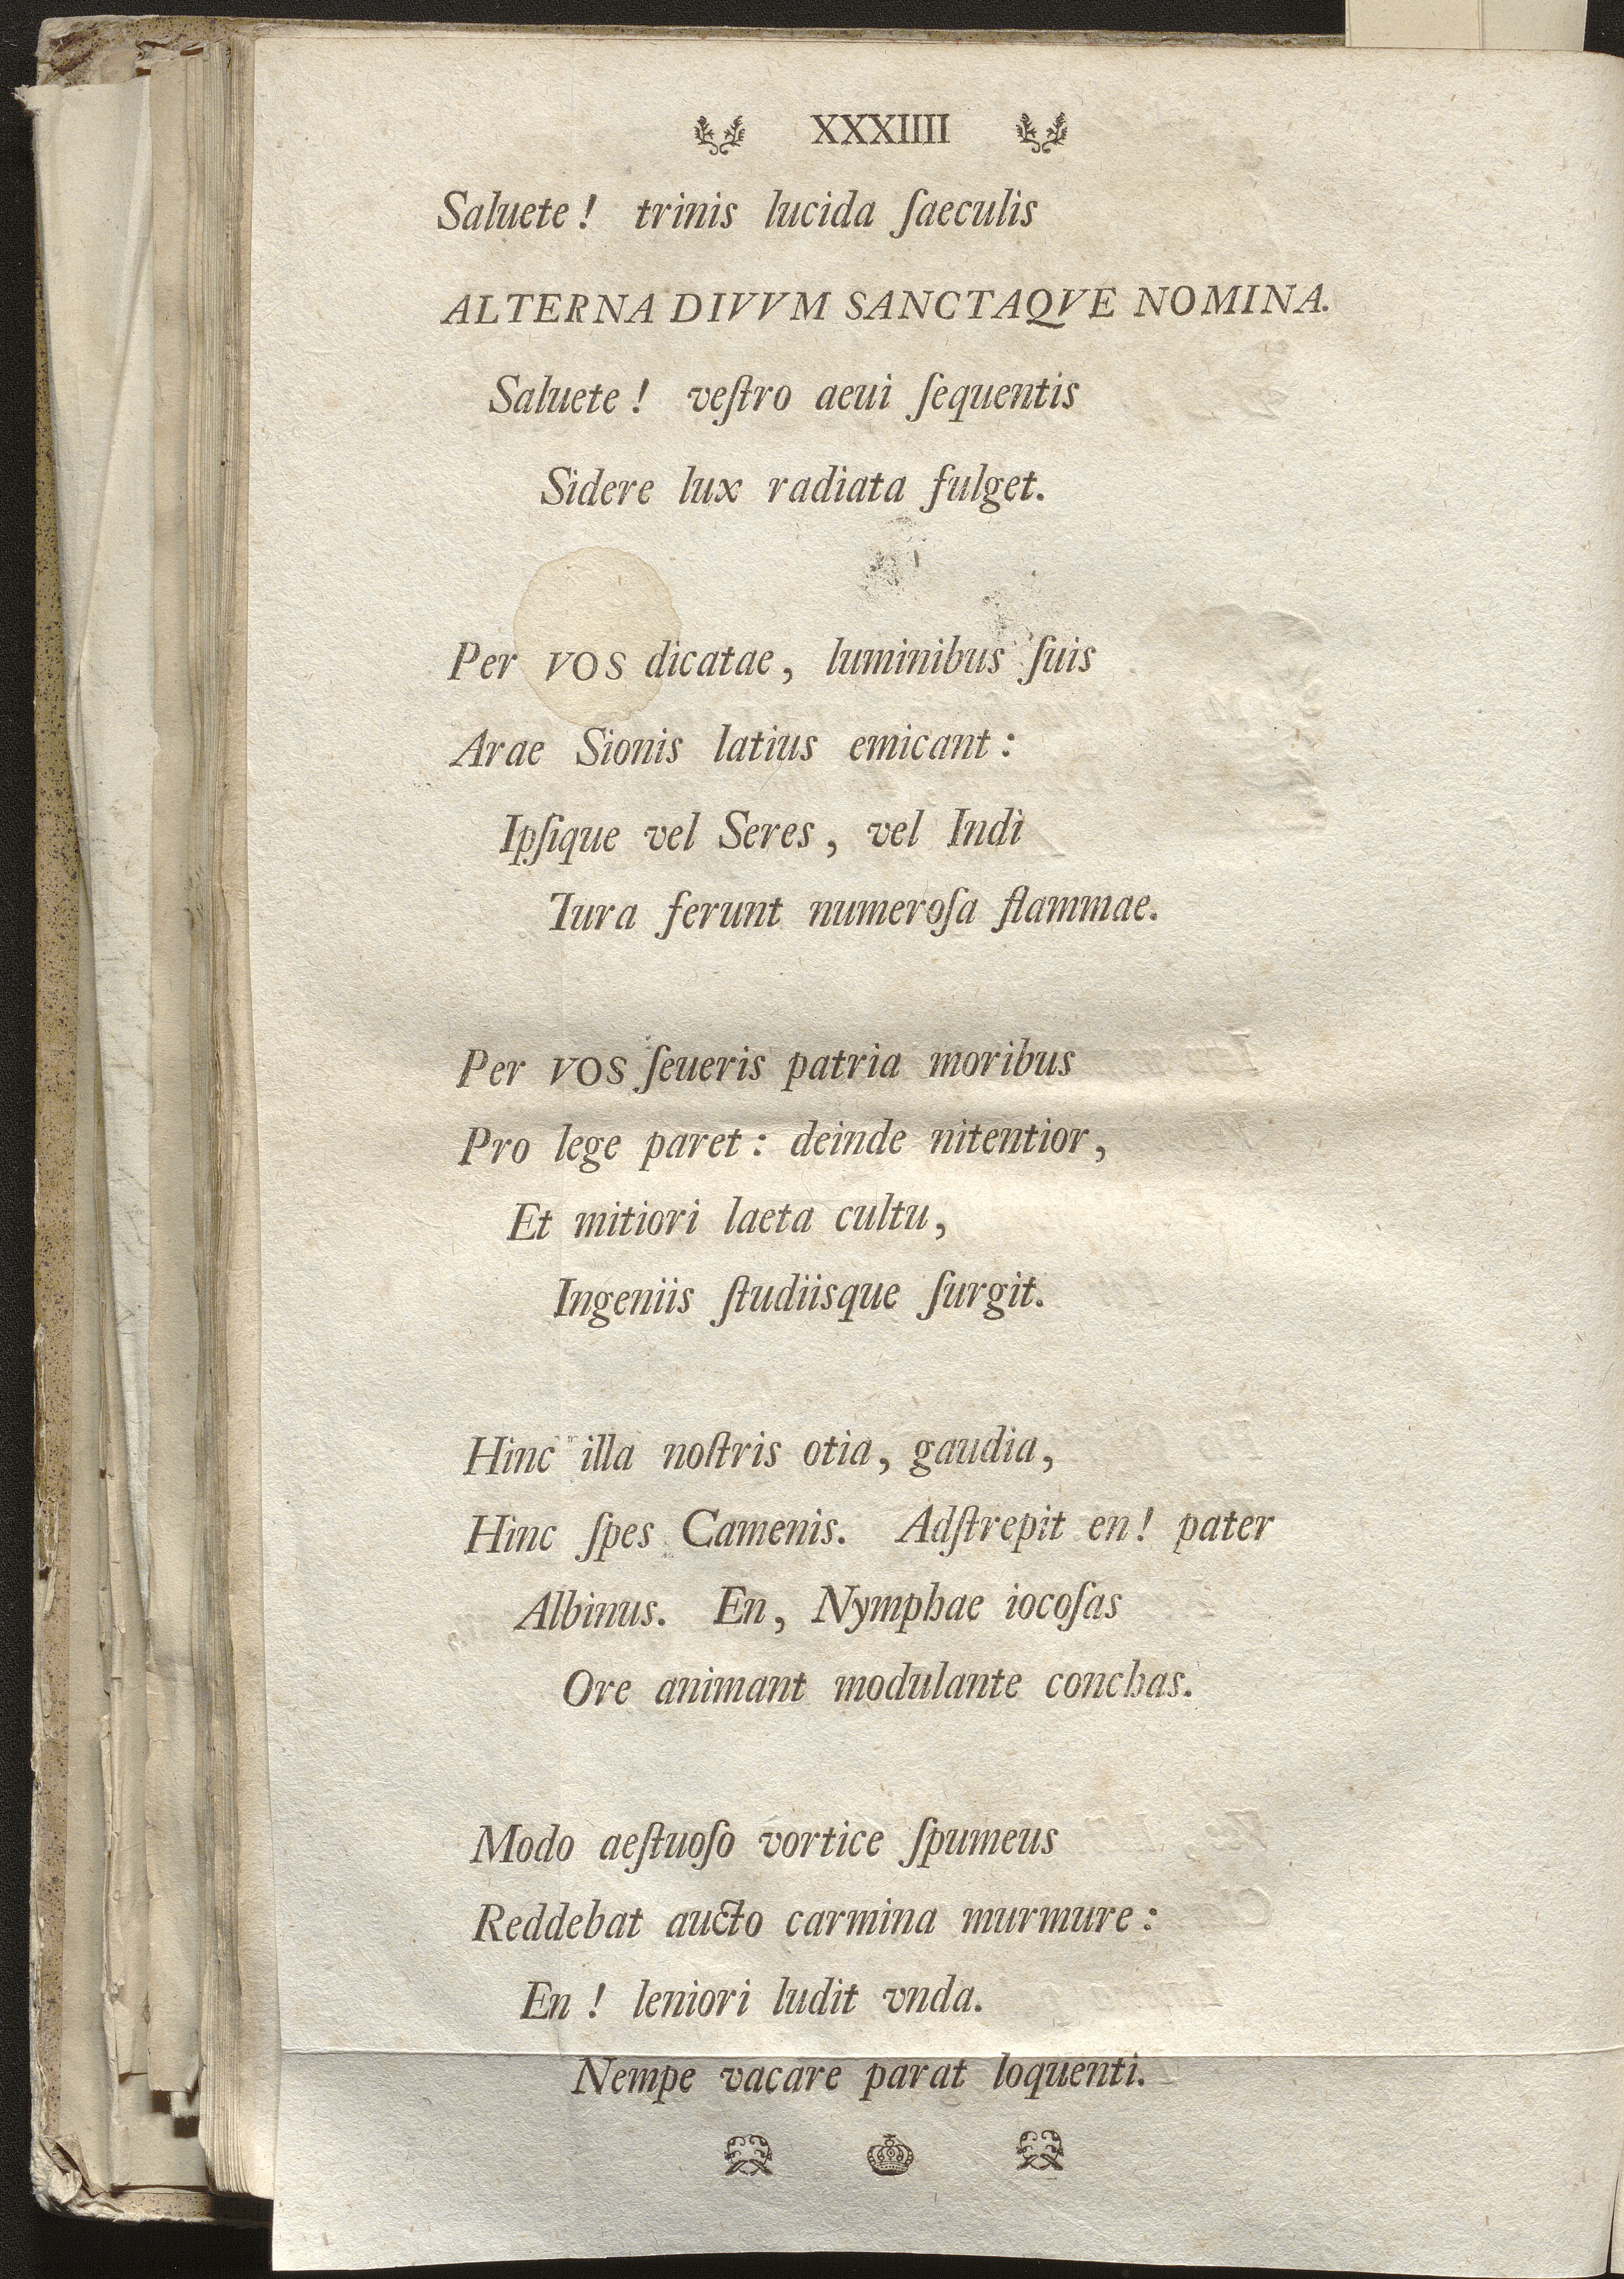 XXXIIII
Saluete! trinis lucida ſaeculis
ALTERNA DIVVM SANCTAQVE NOMINA.
Saluete! veſtro aeui ſequentis
Sidere lux radiata fulget.
Per VOS dicatae, luminibus ſuis
Arae Sionis latius emicant:
Ipſique vel Seres, vel Indi
Iura ferunt numeroſa flammae.
Per VOS ſeueris patria moribus
Pro lege paret: deinde nitentior,
Et mitiori laeta cultu,
Ingeniis ſtudiisque ſurgit.
Hinc illa noſtris otia, gaudia,
Hinc ſpes Camenis. Adſtrepit en! pater
Albinus. En, Nymphae iocoſas
Ore animant modulante conchas.
Modo aeſtuoſo vortice ſpumeus
Reddebat aucto carmina murmure:
En! leniori ludit vnda.
Nempe vacare parat loquenti.